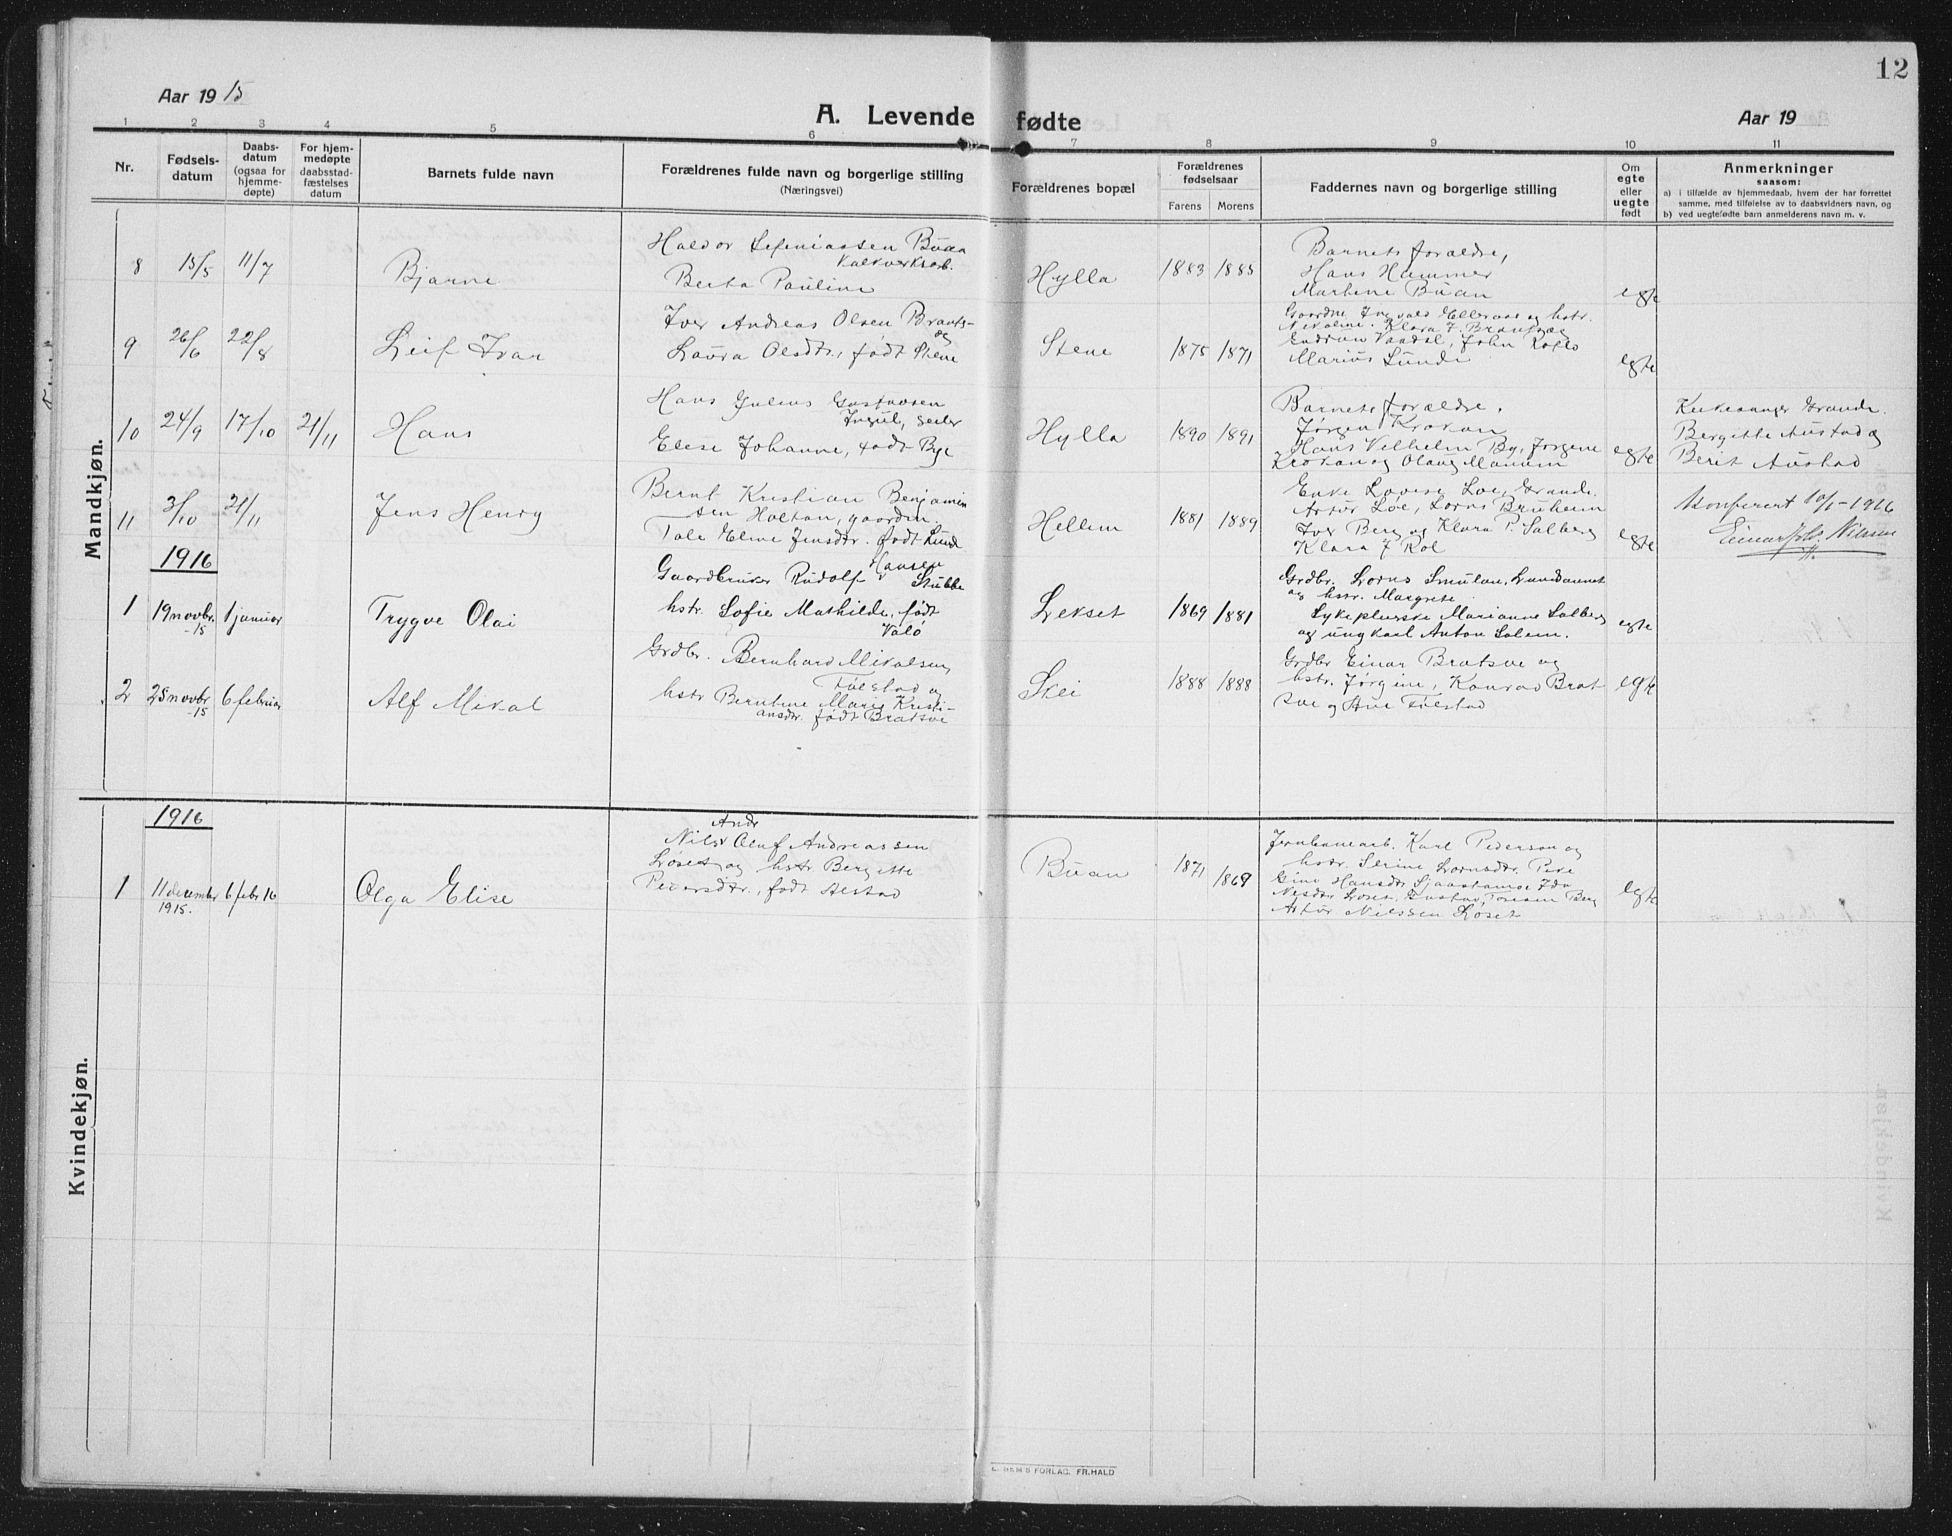 12
Aar 1915
A. Levende fødte
Aar 19
1 2 3 4 5 6 7 8 9 10 11
Nr.
Fødsels-
datum
Daabs-
datum
(ogsaa for
hjemme-
døpte)
For hjem-
medøpte
daabsstad-
fæstelses
datum
Barnets fulde navn
Forældrenes fulde navn og borgerlige stilling
(Næringsvei)
Forældrenes bopæl
Forældrenes
fødselsaar
Farens Morens
Faddernes navn og borgerlige stilling
Om
egte
eller
uegte
født
Anmerkninger
saasom:
a) i tilfælde av hjemmedaab, hvem der har forrettet
samme, med tilføielse av to daabsvidners navn, og
b) ved uegtefødte barn anmelderens navn m. v.
Mandkjøn.
8 15/5 11/7
Bjarne
Haldor Buan
Kalkverksarb.
Berta Pauline
Hylla
1883 1885
Barnets forældre,
Hans Hammer
Martine Buan
egte
9 26/6 22/8
Leif Ivar
Iver Andreas Olsen Bravts-
æg
Laura Olsdtr., født Stene
Stene
1875 1871
Gaardm. Ingvald Helleraas og hstr.
Nikoline. Klara J. Brautsæg
Vaadal, John
Marius Lunde
egte
10 24/9 17/10 21/11
Hans
Hans Julius Gustavsen
Ingul,
Elise Johanne, født Bye
Hylla
1890 1891
Barnets forældre.
Jørgen Krokan
Hans Vilhelm By, Jørgine
Krokan og Olaug Manum
egte
Kirkesanger Grande.
Bergitte Austad og
Berit Austad
11 3/10 21/11
Jens Henry
Bernt Kristian Benjamin
sen Holtan, gaardm.
Tale Eline Jensdtr. født Lunde
Hellem
1881 1889
Enke Lovise Loe, Grande.
Artur Loe, Lorns Bruheim
Iver Berg og Klara P. Salberg
Klara J Rol
egte
Konferert 10/1-1916
Einar Nilsen
1916
1 19 novbr. -15 1 januar
Trygve Olai
Gaardbruker Rudolf Hansen
Stubbe
hstr. Sofie Mathilde, født
Valø
Lekset
1869 1881
Grdbr. Lorns Smulan,
og hstr. Margrete.
Sykepleierske Marianne Salberg
og ungkarl Anton Salem.
egte
2 25 novbr -15 6 februar
Alf Mikal
Grdbr. Bernhard Mikalsen
Følstad og
hstr Berntine Marie Kristi-
ansdtr. født Bratsve
Skei
1888 1888
Grdbr Einar Bratsve og
hstr. Jørgine, Konrad Brat
sve og Ane Følstad
egte
Kvindekjøn.
1916
1 11 december 1915. 6 febr 16
Olga Elise
Andr
Nils Oluf Andreassen
Løset og hstr Bergitte
Pedersdtr., født Alstad
Buan
1871 1869
Jernbanearb. Karl Pederson og
hstr. Serine Lornsdtr.
Hansdtr Ida
Nilsdtr Løset, Gustav Toresen Berg
Artur Nilssen Løset
egte
FORLAG. FR. HALD